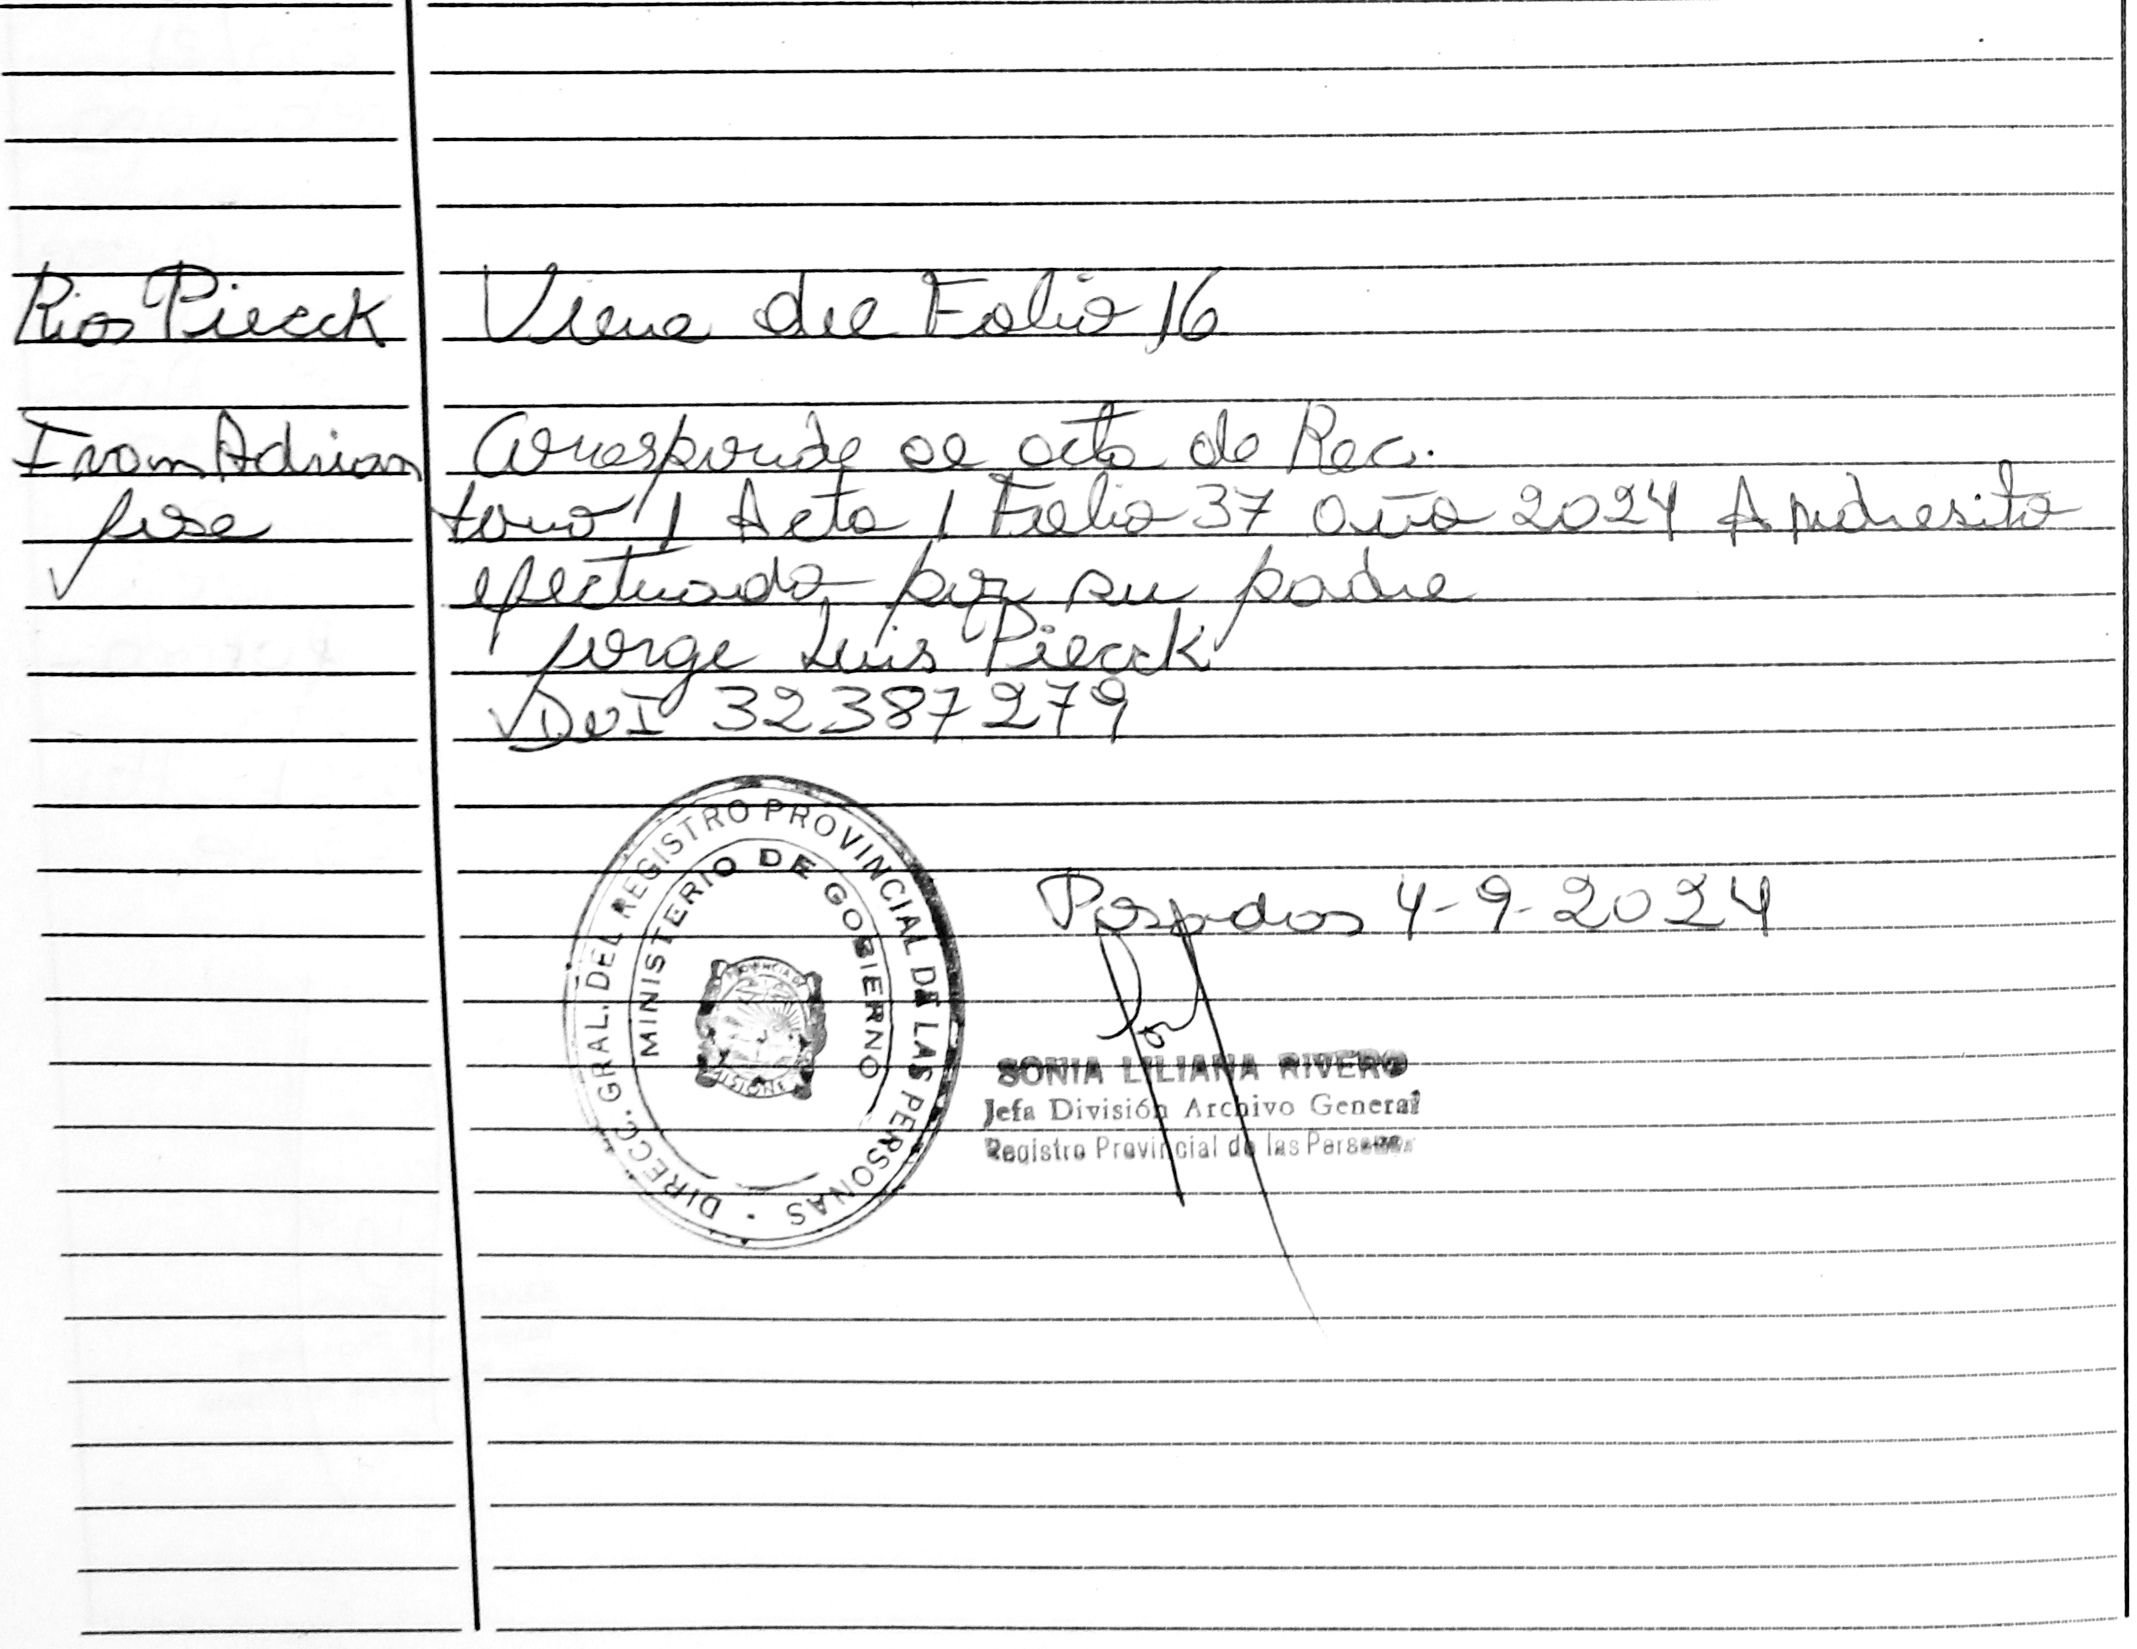 Rios Pieczk
Viene del Folio 16
Ivan Adrian
Jose
Corresponde al acta de Rec.
tomo 1 Acta 1 Folio 37 año 2024 Andresito
efectuado por su padre
Jorge Luis Pieczk
DNI 32387279
DIRECC. GRAL. DEL REGISTRO PROVINCIAL DE LAS PERSONAS
MINISTERIO DE GOBIERNO
PROVINCIA DE
MISIONES
Posadas 4-9-2024
SONIA LILIANA RIVERO
Jefa División Archivo General
Registro Provincial de las Personas